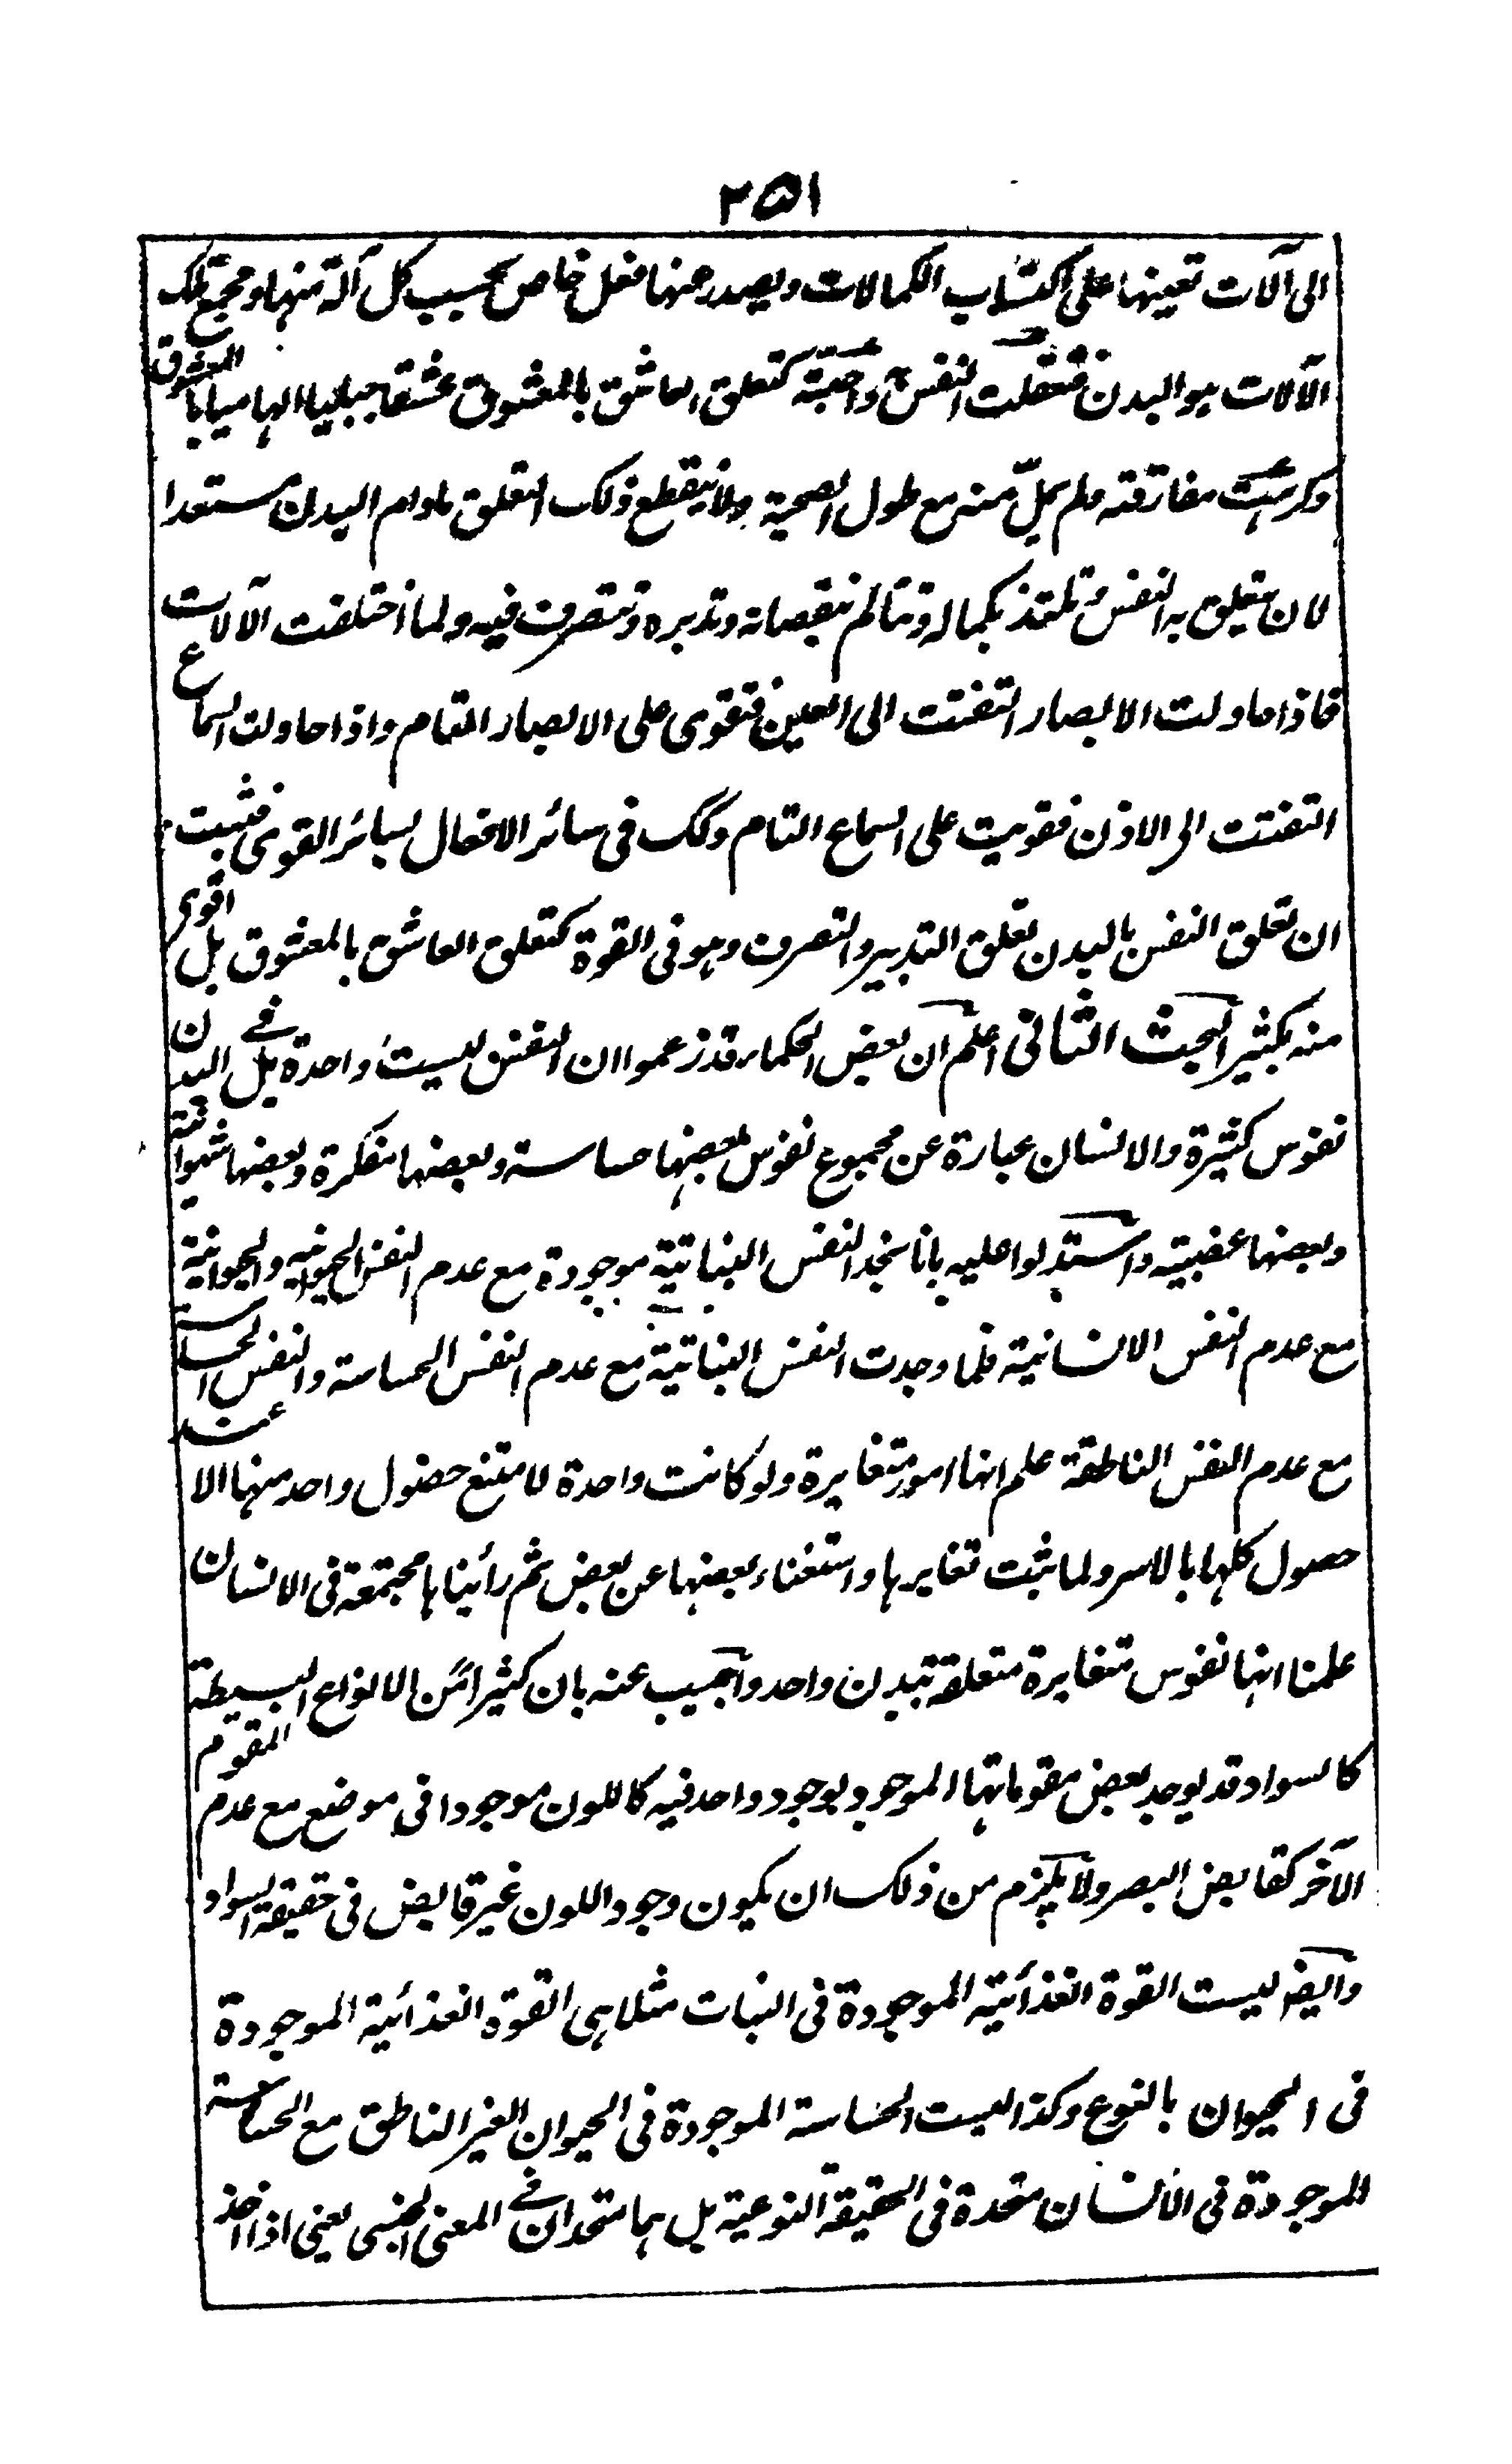 ٢٥١
الى آلات تعينها على اكتساب الكمالات ويصدر عنها فعل خاص بحسب كل آلة منها ومجمع تلك
الآلات هو البدن فتعلقت النفس به واحبته كتعلق العاشق بالمعشوق عشقا جبليا الهاميا بالمعشوق
وكرهت مفارقته ولم يملّ منه مع طول الصحبة ولا ينقطع ذلك التعلق مادام البدن مستعدا
لان يتعلق به النفس وتلتذ بكماله وتتألم بنقصانه وتدبره وتتصرف فيه ولما اختلفت الآلات
فاذا حاولت الابصار التفتت الى العين فتقوى على الابصار التام واذا حاولت السماع
التفتت الى الاذن فقويت على السماع التام وكك فى سائر الافعال بسائر القوى فثبت
ان تعلق النفس بالبدن تعلق التدبير والتصرف وهو فى القوة كتعلق العاشق بالمعشوق بل اقوى
منه بكثير البحث الثانى اعلم ان بعض الحكماء قد زعموا ان النفس ليست واحدة بل فى البدن
نفوس كثيرة والانسان عبارة عن مجموع نفوس بعضها حساسة وبعضها مفكرة وبعضها شهوانية
وبعضها غضبية واستدلوا عليه بانا نجد النفس النباتية موجودة مع عدم النفس الحيوانية والحيوانية
مع عدم النفس الانسانية فلما وجدت النفس النباتية مع عدم النفس الحساسة والنفس الحساسة
مع عدم النفس الناطقة علم انها امور متغايرة ولو كانت واحدة لامتنع حصول واحد منها الا عند
حصول كلها بالاسر ولما ثبت تغايرها واستغناء بعضها عن بعض ثم رأيناها مجتمعة فى الانسان
علمنا انها نفوس متغايرة متعلقة ببدن واحد واجيب عنه بان كثيرا من الانواع البسيطة
كالسواد قد يوجد بعض مقوماتها الموجود بوجود واحد فيه كاللون موجودا فى موضع مع عدم المقوم
الآخر كقابض البصر ولا يلزم من ذلك ان يكون وجود اللون غير قابض فى حقيقة السواد
وايضا ليست القوة الغذائية الموجودة فى النبات مثلا هى القوة الغذائية الموجودة
فى الحيوان بالنوع وكذا ليست الحساسة الموجودة فى الحيوان الغير الناطق مع الحساسة
الموجودة فى الانسان متحدة فى الحقيقة النوعية بل هما متحدان فى المعنى الجنسى يعنى اذا اخذ